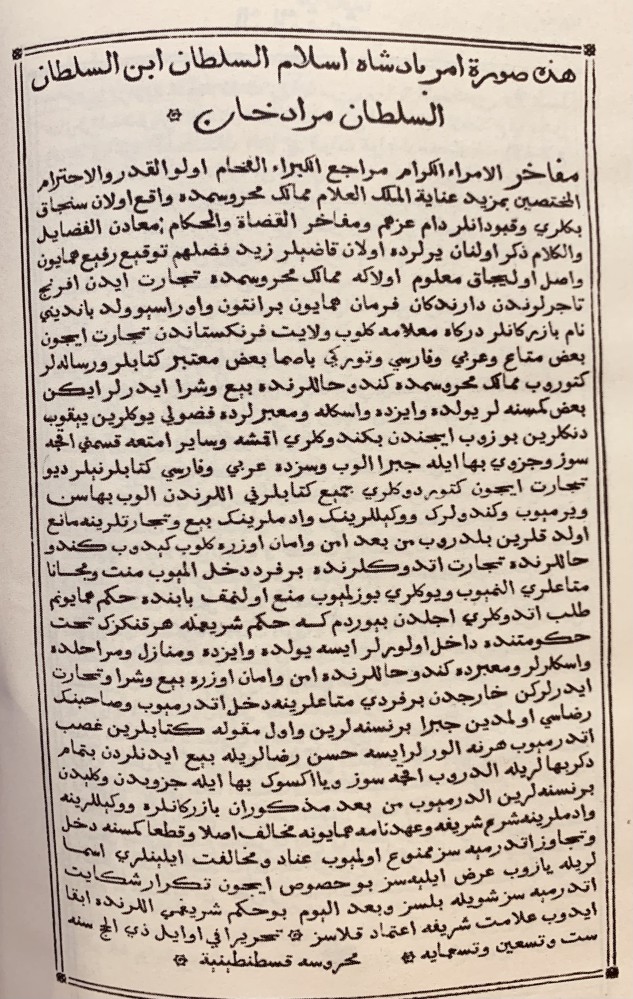 هذه صورة امر پادشاه اسلام السلطان ابن السلطان
السلطان مراد خان
مفاخر الامراء الكرام مراجع الكبراء الفخام اولو القدر والاحترام
المختصين بمزيد عناية الملك العلام ممالك محروسمده واقع اولان سنجاق
بكلري وقبودانلر دام عزهم ومفاخر القضاة والحكام معادن الفضايل
والكلام ذكر اولنان يرلرده اولان قاضيلر زيد فضلهم توقيع رفيع همايون
واصل اوليجاق معلوم اولاكه ممالك محروسمده تجارت ايدن افرنج
تاجرلوندن دارندكان فرمان همايون برانتون واوراسيو ولد بانديني
نام بازركانلر دركاه معلامه كلوب ولايت فرنكستاندن تجارت ايجون
بعض متاع وعربي وفارسي وتوركي باصما بعض معتبر كتابلر ورساله لر
كتوروب ممالك محروسمده كندو حاللرنده بيع وشرا ايدرلر ايكن
بعض كمسنه لر يولده وايزده واسكله ومعبرلرده فضولي يوكلرين ييقوب
دنكلرين بوزوب ايجندن بكندوكلري اقمشه وساير امتعه قسمني اقجه
سوز وجزوي بها ايله جبرا الوب وسزده عربي وفارسي كتابلر نيلر ديو
تجارت ايجون كتوردوكلري جميع كتابلرفي اللرندن الوب بهاسن
ويرميوب وكندولرك ووكيللرينك وادملرينك بيع وتجارتلرينه مانع
اولد قلرين بلدروب من بعد امن وامان اوزره كلوب كيدوب كندو
حاللرنده تجارت اتدوكلرنده برفرد دخل الميوب منت ومجانا
متاعلري النميوب ويوكلري بوزلميوب منع اولنمق بابنده حكم همايونم
طلب اتدوكلري اجلدن بيوردم كه حكم شريفمله هر قنكزك تحت
حكومتنده داخل اولورلر ايسه يولده وايزده ومنازل ومراحلده
واسكلرلر ومعبرده كندو حاللرنده امن وامان اوزره بيع وشرا وتجارت
ايدرلركن خارجدن برفردي متاعلرينه دخل اتدرميوب وصاحبنك
رضاسي اولمدين جبرا برنسنه لرين واول مقوله كتابلرين غصب
اتدرميوب هرنه الورلر ايسه حسن رضالريله بيع ايدنلردن بتمام
دكر بهالريله الدروب اقجه سوز ويا اكسوك بها ايله جزويدن وكليدن
برنسنه لرين الدرميوب من بعد مذكوران بازركانلره ووكيللرينه
وادملرينه شرع شريفه وعهدنامه همايونه مخالف اصلا وقطعا كمسنه دخل
وتجاوز اتدرميه سز ممنوع اولميوب عناد ومخالفت ايلينلري اسما
لريله يازوب عرض ايليه سز بو حصوص ايجون تكرار شكايت
اتدرميه سز شويله بلسز وبعد اليوم بو حكم شريفمي اللرنده ابقا
ايدوب علامت شريفه اعتماد قلاسز تحريرا في اوايل ذي الحج سنه
ست وتسعين وتسعمايه محروسه قسطنطينية